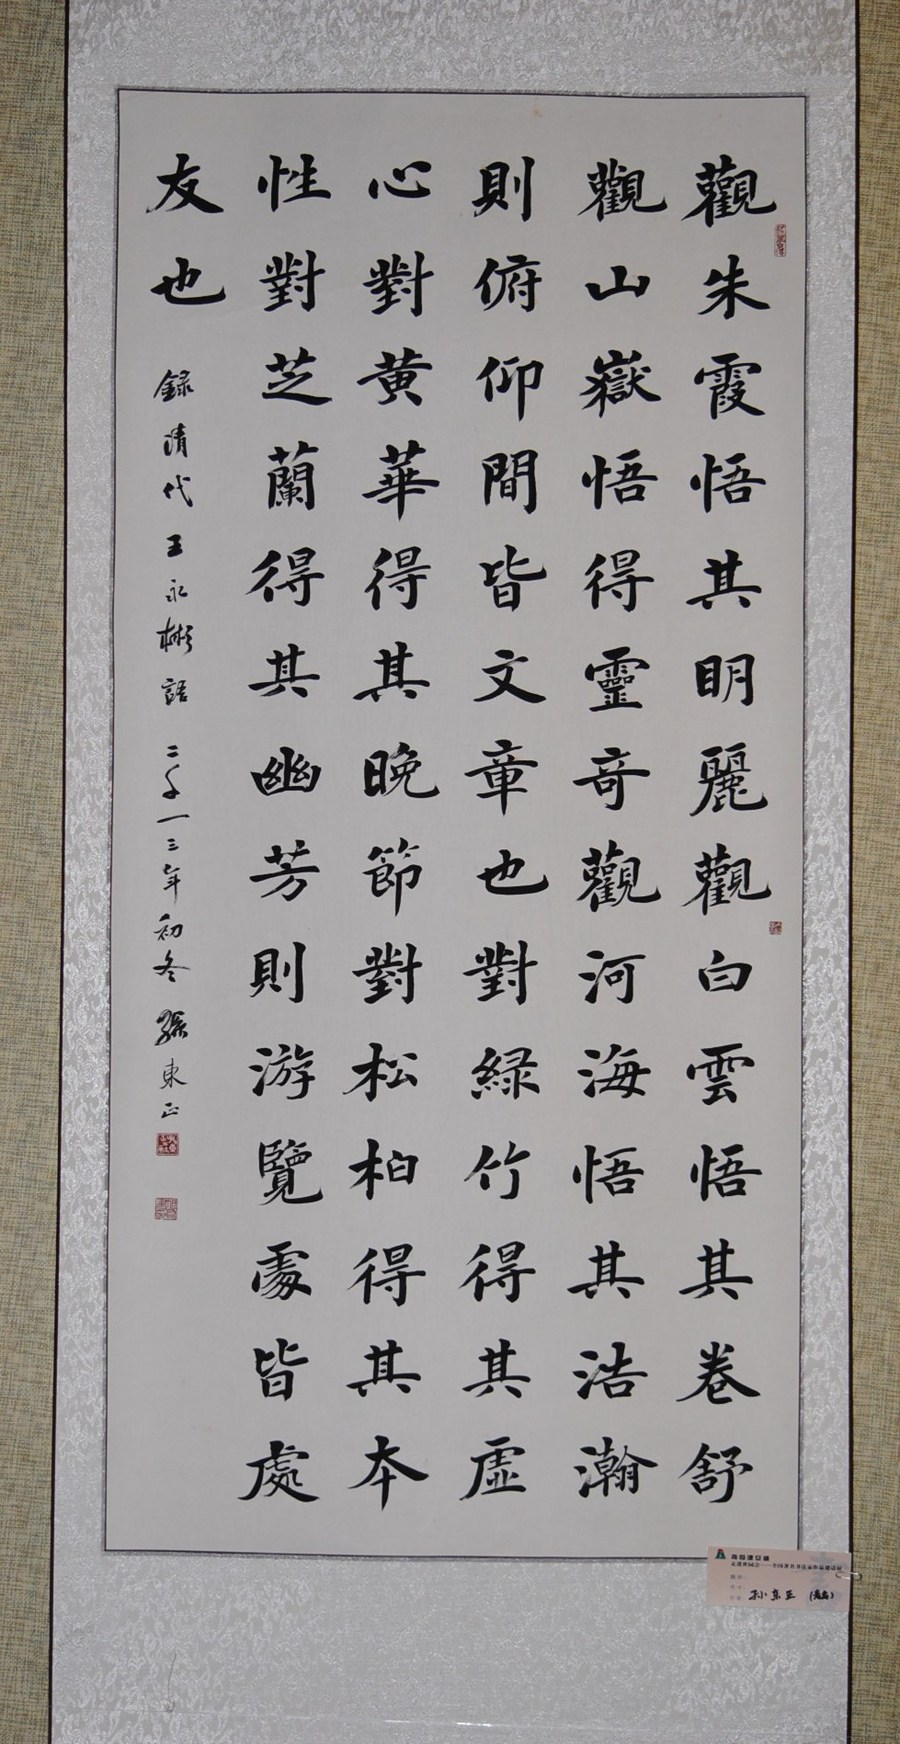 觀朱霞悟其明麗觀白雲悟其卷舒
觀山嶽悟得靈奇觀河海悟其浩瀚
則俯仰間皆文章也對緑竹得其虛
心對黄華得其晚節對松柏得其本
性對芝蘭得其幽芳則游覽處皆處
友也
録清代王永彬語 二千一三年初冬 孫東正
孙东正